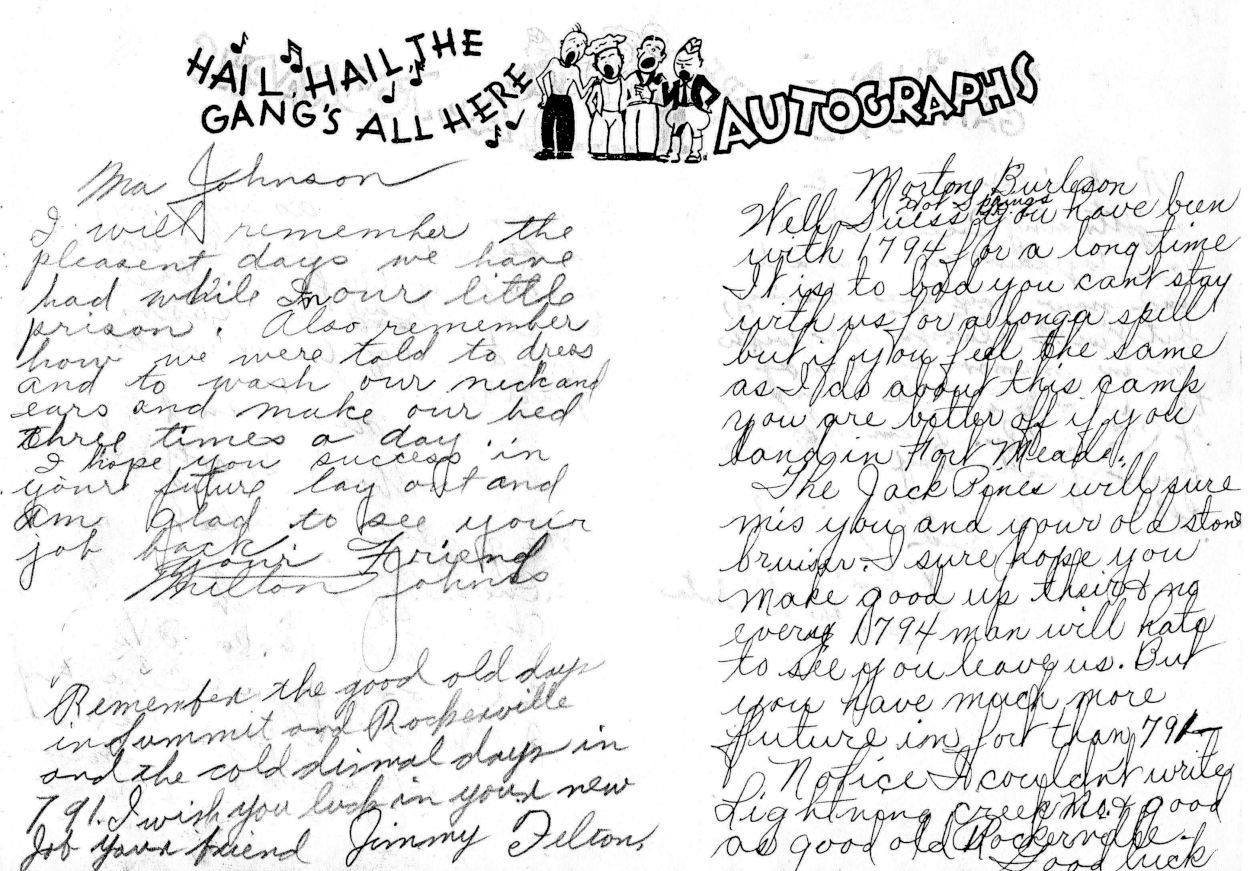 HAIL, HAIL THE
GANG'S ALL HERE
AUTOGRAPHS
Ma Johnson
I will remember the
pleasent days we have
had while In our little
prison. Also remember
how we were told to dress
and to wash our neck and
ears and make our bed
three times a day.
I hope you success in
your future lay out and
am glad to see your
job back
your Friend
Milton Johns
Remember the good old days
in Summit and Rockerville
and the cold dismal days in
791. I wish you luck in your new
Job your friend Jimmy Felton.
Mortone Burleson
Hot Springs
Well Guess you have been
with 1794 for a long time
It is to bad you can't stay
with us for a longer spill
but if you feel the same
as I do about this camp
you are better off if you
land in Fort Meade.
The Jack Pines will sure
mis you and your old stone
bruiser. I sure hope you
make good up their & no
every 1794 man will hate
to see you leave us. But
you have much more
future in fort than 791
Notice I couldn't write
Lightning creek No. & good
as good old Rockerville.
Good luck